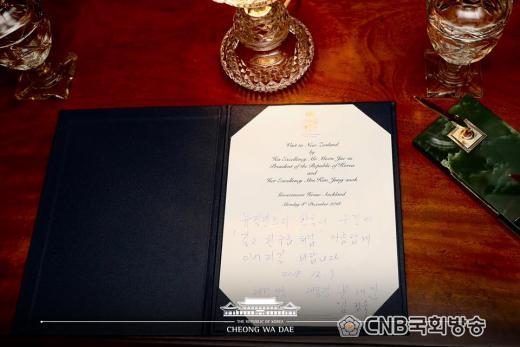 Visit to New Zealand
by
His Excellency Mr Moon Jae-in
President of the Republic of Korea
and
Her Excellency Mrs Kim Jung-sook
Government House Auckland
Monday 3rd December 2018
뉴질랜드와 한국의 우정이
길고 흰구름처럼 아름답게
이어지길 바랍니다
2018. 12. 3
대한민국 대통령 문재인
THE REPUBLIC OF KOREA
CHEONG WA DAE
CNB국회방송